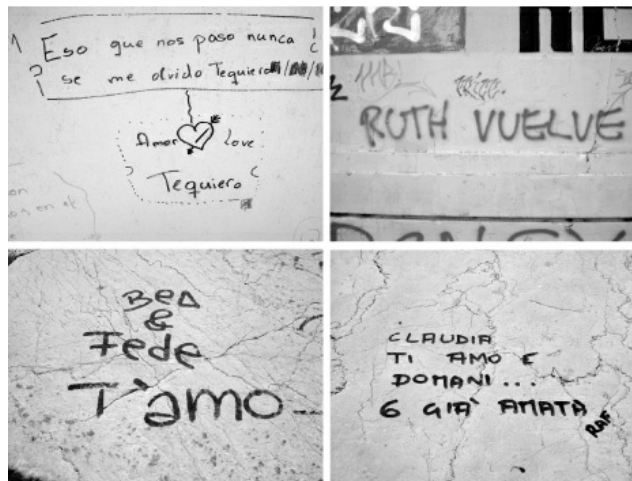 Eso que nos paso nunca
se me olvido Tequiero
Amor Love
Tequiero
RUTH VUELVE
BeA
&
Fede
T'amo...
CLAUDIA
TI AMO E
DOMANI...
6 GIÀ AMATA
RAF